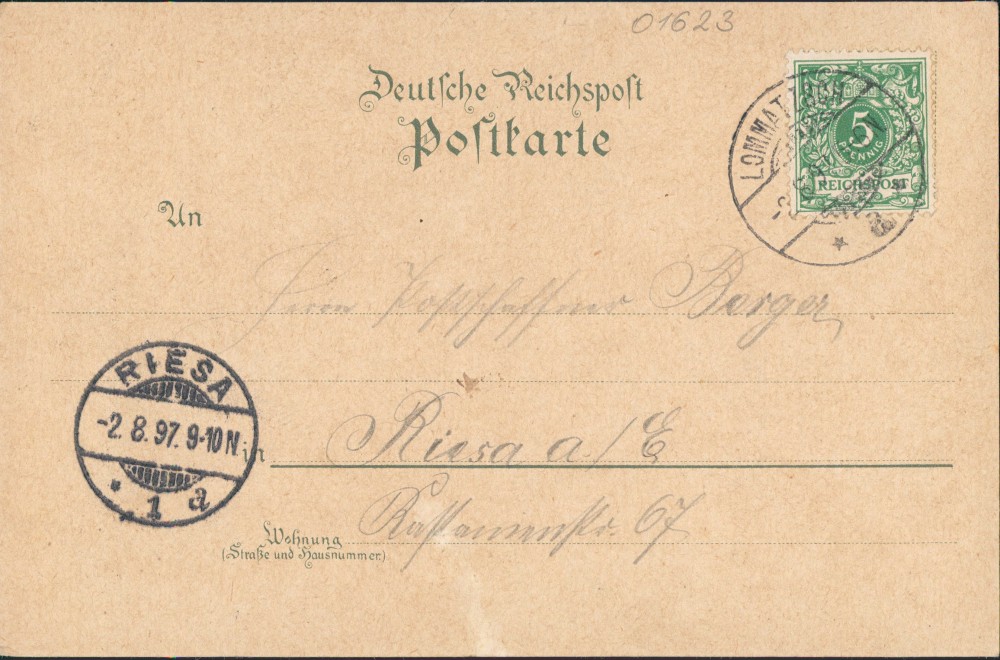 01623
Deutsche Reichspost
Postkarte
LOMMATZSCH
5
PFENNIG
REICHSPOST
An
Herrn Postschaffner Berger
RIESA
-2.8.97. 9-10 N.
* 1 a
in Riesa a/E
Kastanienstr. 67
Wohnung
(Straße und Hausnummer.)